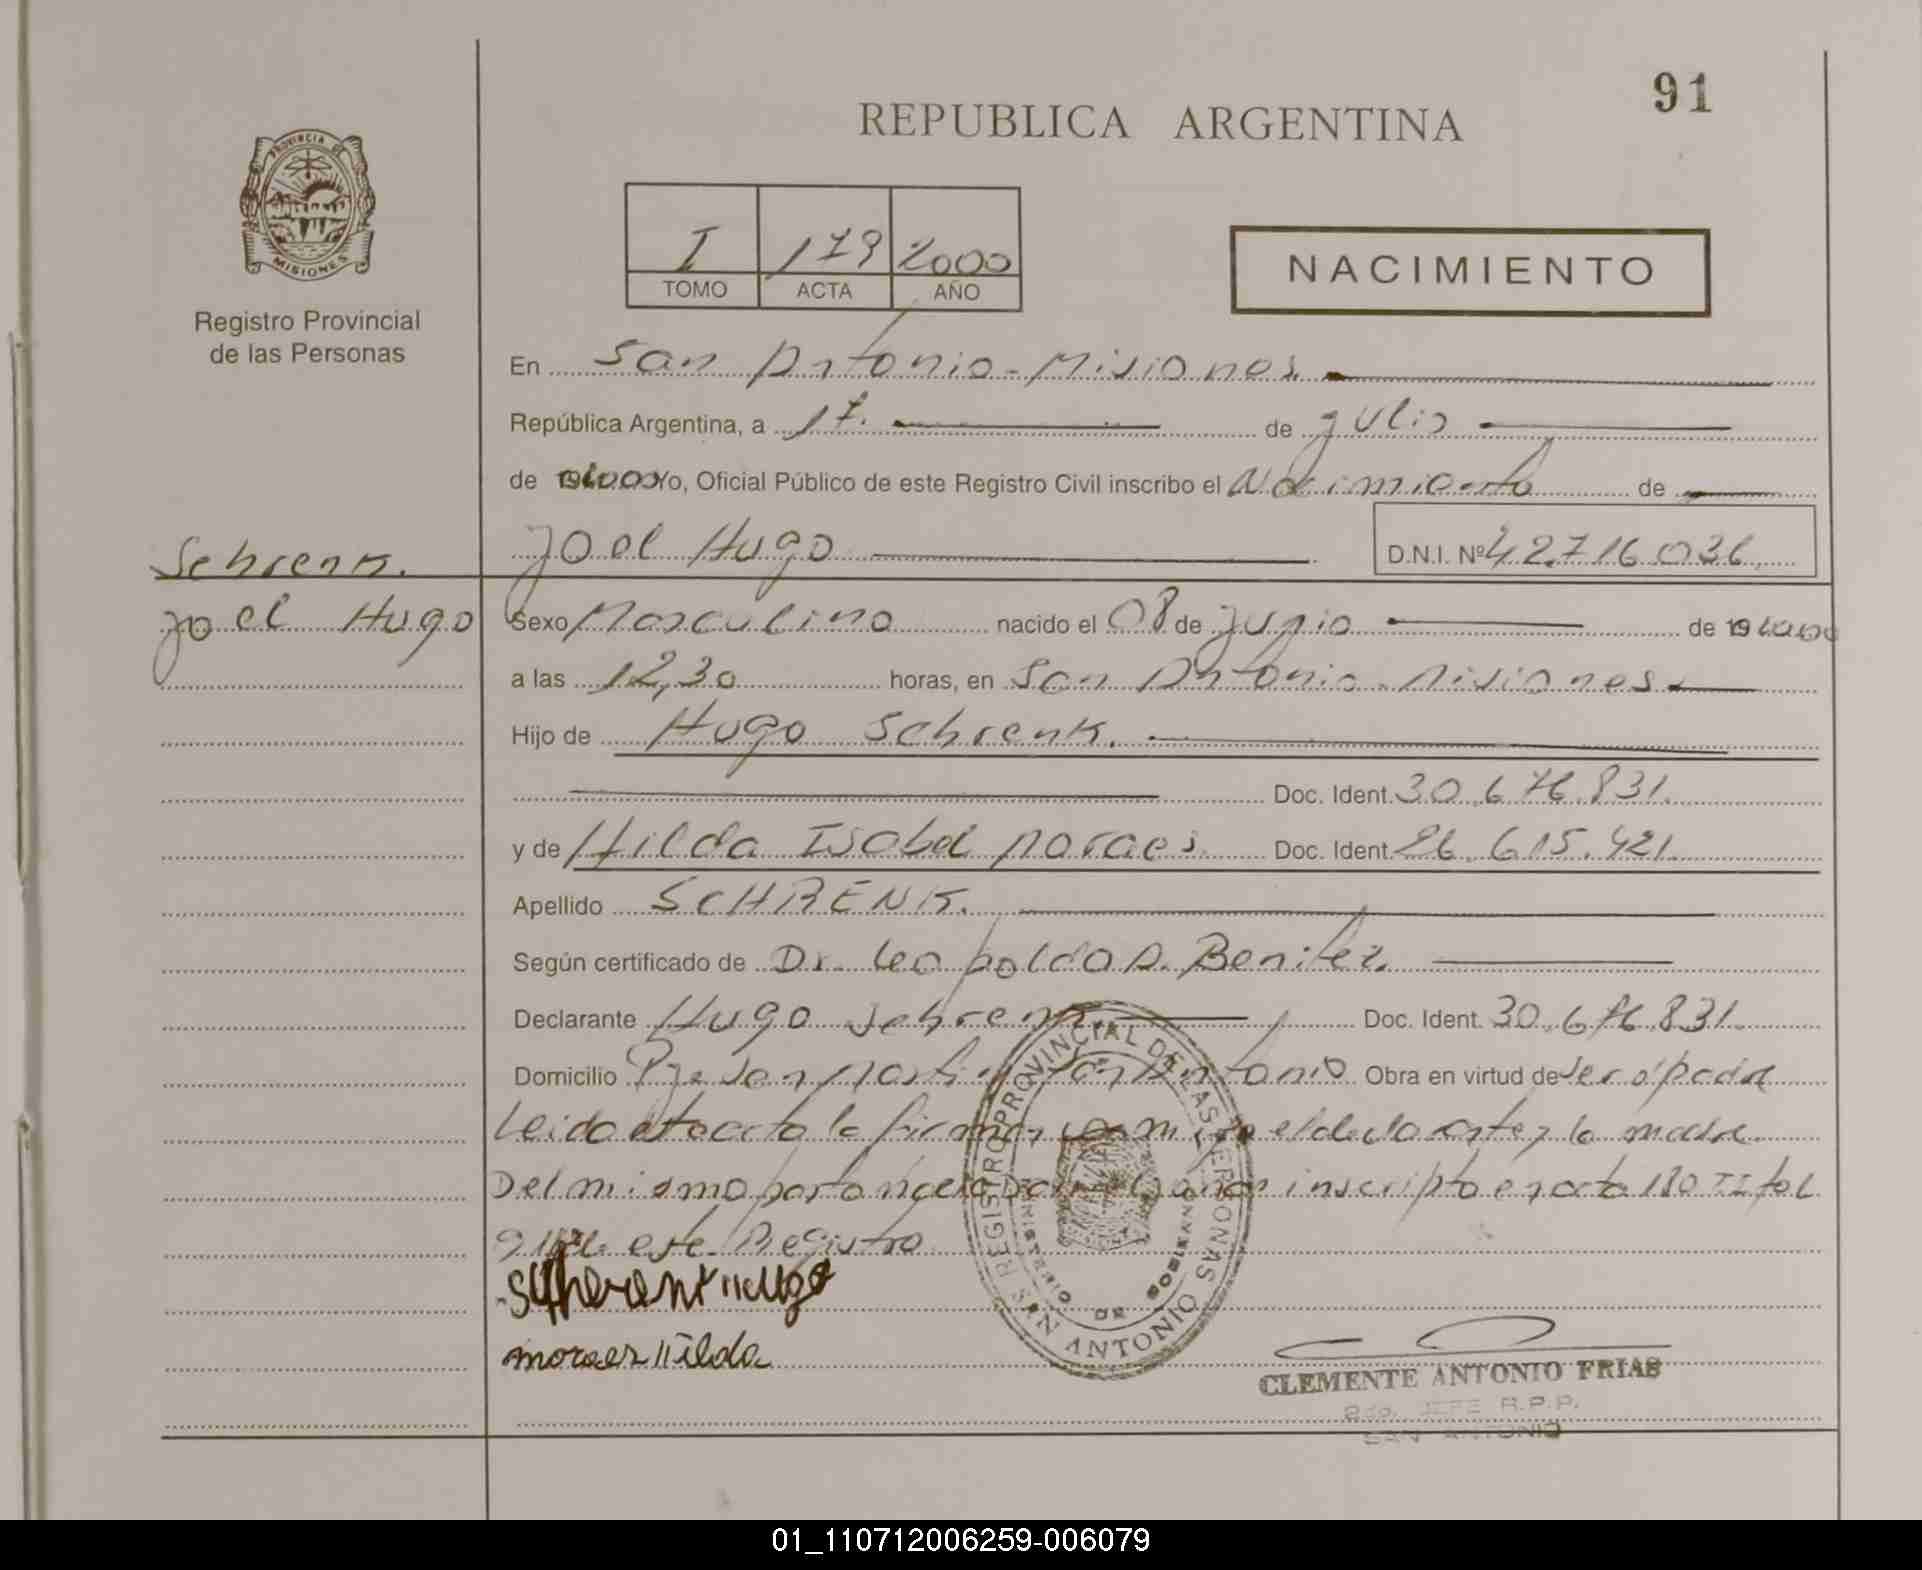 91
REPUBLICA ARGENTINA
PROVINCIA DE
MISIONES
Registro Provincial
de las Personas
I 179 2000
TOMO ACTA AÑO
NACIMIENTO
En San Antonio - Misiones.
República Argentina, a 17. de Julio
de 2000 Yo, Oficial Público de este Registro Civil inscribo el Nacimiento de
Schrenk.
Joel Hugo
Joel Hugo D.N.I. Nº 42.716.036
Sexo Masculino nacido el 08 de Junio de 192000
a las 12,30 horas, en San Antonio - Misiones.
Hijo de Hugo Schrenk.
Doc. Ident. 30.676.831.
y de Hilda Isabel Moraes. Doc. Ident. 26.615.421.
Apellido SCHRENK.
Según certificado de Dr. Leopoldo A. Benitez.
Declarante Hugo Schrenk Doc. Ident. 30.676.831.
Domicilio San Martin San Antonio Obra en virtud de ser el padre
Leido el acta la firman el declarante y la madre
Del mismo parto nacio inscripto en acta 180 TI fol
este Registro
Schrenk Hugo
moraes Hilda
REGISTRO PROVINCIAL DE LAS PERSONAS
MINISTERIO DE GOBIERNO
SAN ANTONIO
CLEMENTE ANTONIO FRIAS
2do. JEFE R.P.P.
SAN ANTONIO
01_110712006259-006079